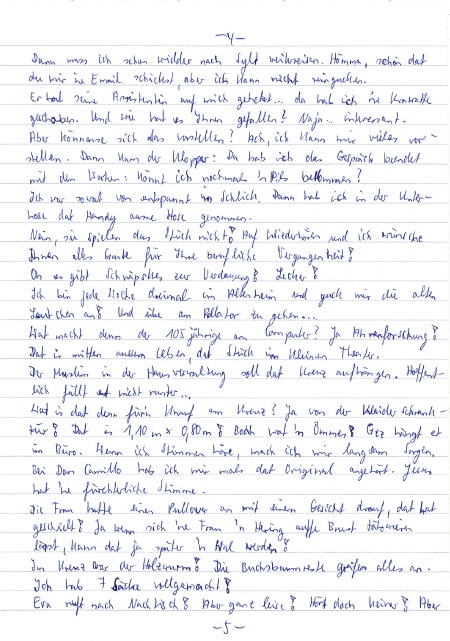 -4-
Dann muss ich schon wieder nach Sylt weiterreisen. Hömma, schön dat
du mir ne Email schickst, aber ich kann nicht reingucken.
Er hat seine Assistentin auf mich gehetzt... da hab ich ne Krawatte
Und wie hat es Ihnen gefallen? Naja... interessant.
Aber können se sich das vorstellen? Ach, ich kann mir vieles vor-
stellen. Dann kam der Klopper: Da hab ich das Gespräch beendet
mit den Worten: Könnt ich nochmal 'n Pils bekommen?
Ich war sowat von entspannt im Schlich. Dann hab ich in der Unter-
hose dat Handy ausse Hose genommen.
Nein, sie spielen das Stück nicht! Auf Wiederhören und ich wünsche
Ihnen alles Gute für Ihre berufliche Vergangenheit!
Oh es gibt Schnäpschen zur Verdauung! Lecker!
Ich bin jede Woche dreimal im Altenheim und guck mir die alten
Leutchen an! Und übe am Rollator zu gehen...
Wat macht denn der 105 jährige am Computer? Ja Ahnenforschung!
Dat is mitten aussem Leben, dat Stück im Kleinen Theater.
Der Muslim in der Hausverwaltung soll dat Kreuz aufhängen. Hoffent-
lich fällt et nicht runter...
Wat is dat denn fürn Knauf am Kreuz? Ja von der Kleiderschrank-
tür! Dat is 1,10 m x 0,80 m! Boah wat'n Ömmes! Gez hängt et
im Büro. Wenn ich Stimmen höre, mach ich mir langsam Sorgen.
Bei Don Camillo hab ich mir mals dat Original angehört. Jesus
hat 'ne fürchterliche Stimme.
Die Frau hatte einen Pullover an mit einem Gesicht drauf, dat hat
geschielt! Ja wenn sich 'ne Frau 'n Hering auffe Brust tätowieren
lässt, kann dat ja später 'n Wal werden!
Im Kreuz war der Holzwurm! Die Buchsbaumreste greifen alles an.
Ich hab 7 Säcke vollgemacht!
Eva ruft nach Nachtisch! Aber ganz leise! Hört doch keiner! Aber
-5-